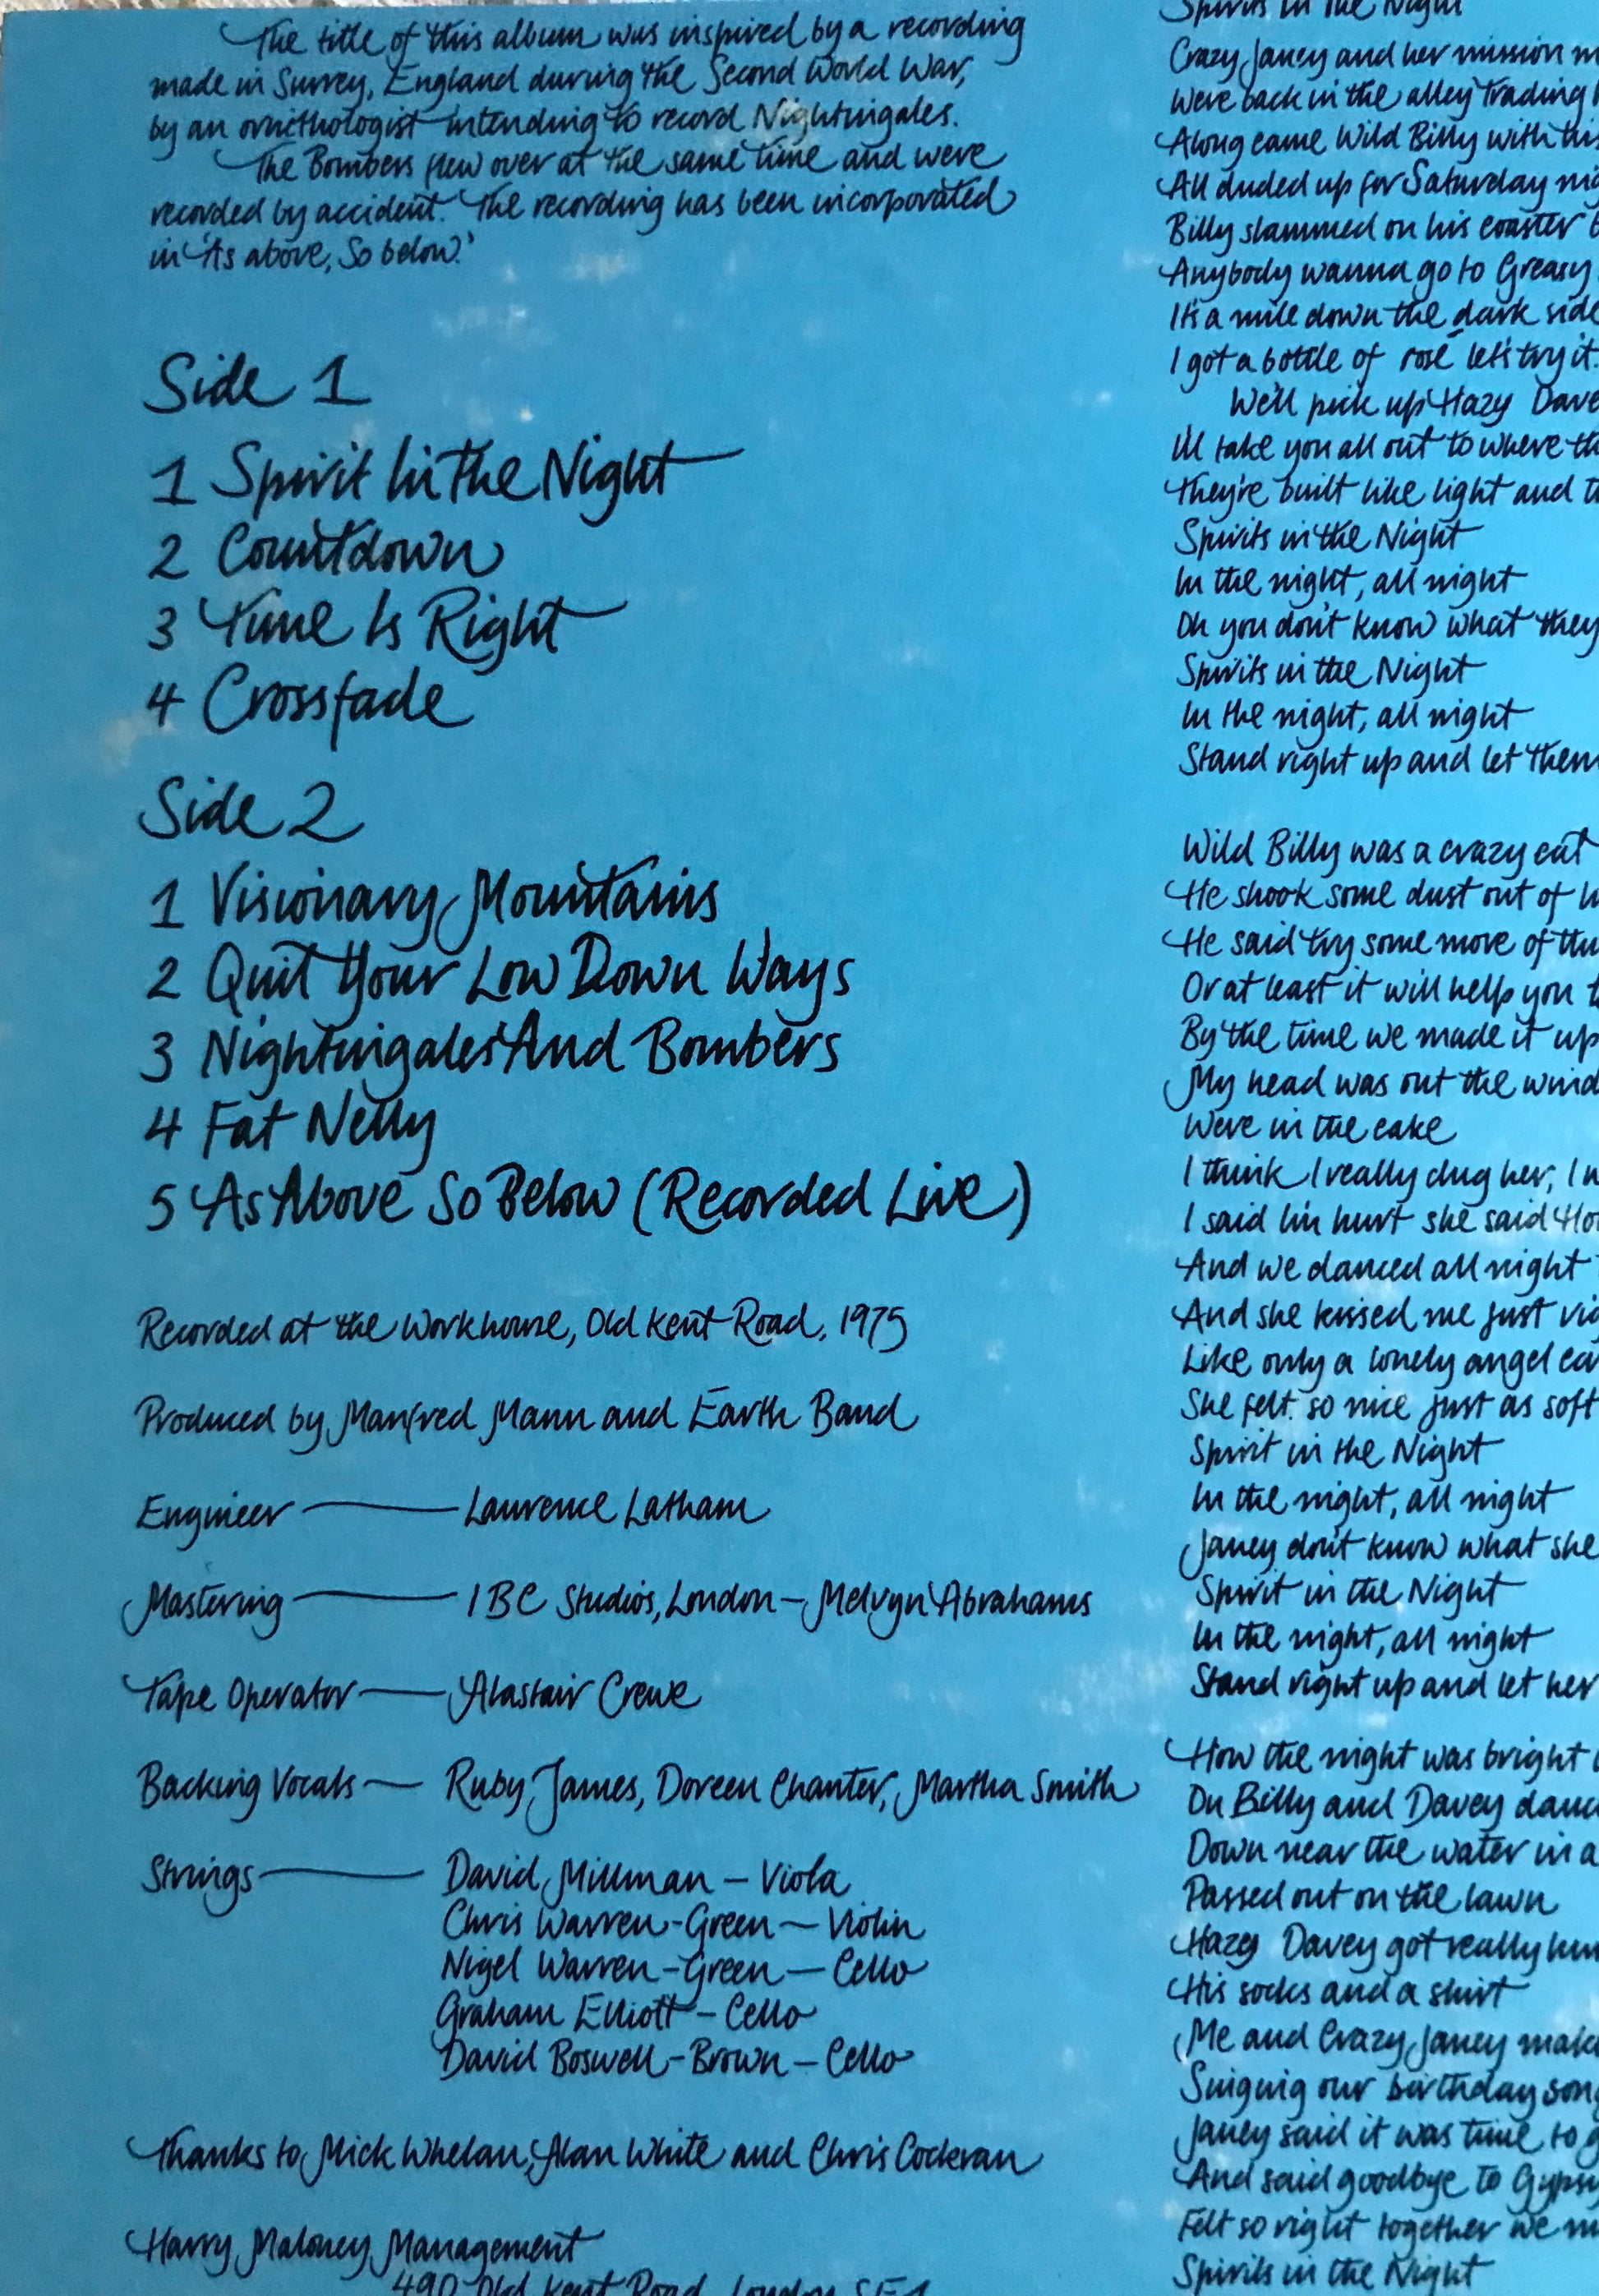 The title of this album was inspired by a recording
made in Surrey, England during the Second World War,
by an ornithologist intending to record Nightingales.
The Bombers flew over at the same time and were
recorded by accident. The recording has been incorporated
in 'As above, So below.'
Side 1
1 Spirit In the Night
2 Countdown
3 Time Is Right
4 Crossfade
Side 2
1 Visionary Mountains
2 Quit Your Low Down Ways
3 Nightingales And Bombers
4 Fat Nelly
5 As Above So Below (Recorded Live)
Recorded at the Workhouse, Old Kent Road, 1975
Produced by Manfred Mann and Earth Band
Engineer — Laurence Latham
Mastering — IBC Studios, London – Melvyn Abrahams
Tape Operator — Alastair Crewe
Backing Vocals — Ruby James, Doreen Chanter, Martha Smith
Strings — David Millman – Viola
Chris Warren-Green — Violin
Nigel Warren-Green — Cello
Graham Elliott – Cello
David Boswell-Brown – Cello
Thanks to Mick Whelan, Alan White and Chris Cockran
Harry Maloney Management
490 Old Kent Road, London SE1
Spirits in the Night
Crazy Janey and her mission
Were back in the alley trading
Along came Wild Billy with his
All duded up for Saturday
Billy slammed on his coaster
Anybody wanna go to Greasy
It's a mile down the dark side
I got a bottle of rosé let's try it.
We'll pick up Hazy Dave
I'll take you all out to where
They're built like light and
Spirits in the Night
In the night, all night
Oh you don't know what they
Spirits in the Night
In the night, all night
Stand right up and let them
Wild Billy was a crazy cat
He shook some dust out of
He said try some more of
Or at least it will help you
By the time we made it up
My head was out the
Were in the cake
I think I really dug her, I
I said I'm hurt she said
And we danced all night
And she kissed me just
Like only a lonely angel
She felt so nice just as soft
Spirit in the Night
In the night, all night
Janey don't know what she
Spirit in the Night
In the night, all night
Stand right up and let her
How the night was bright
On Billy and Davey
Down near the water in a
Passed out on the lawn
Hazy Davey got really
His socks and a shirt
Me and Crazy Janey
Singing our birthday
Janey said it was time to
And said goodbye to
Felt so right together we
Spirits in the Night